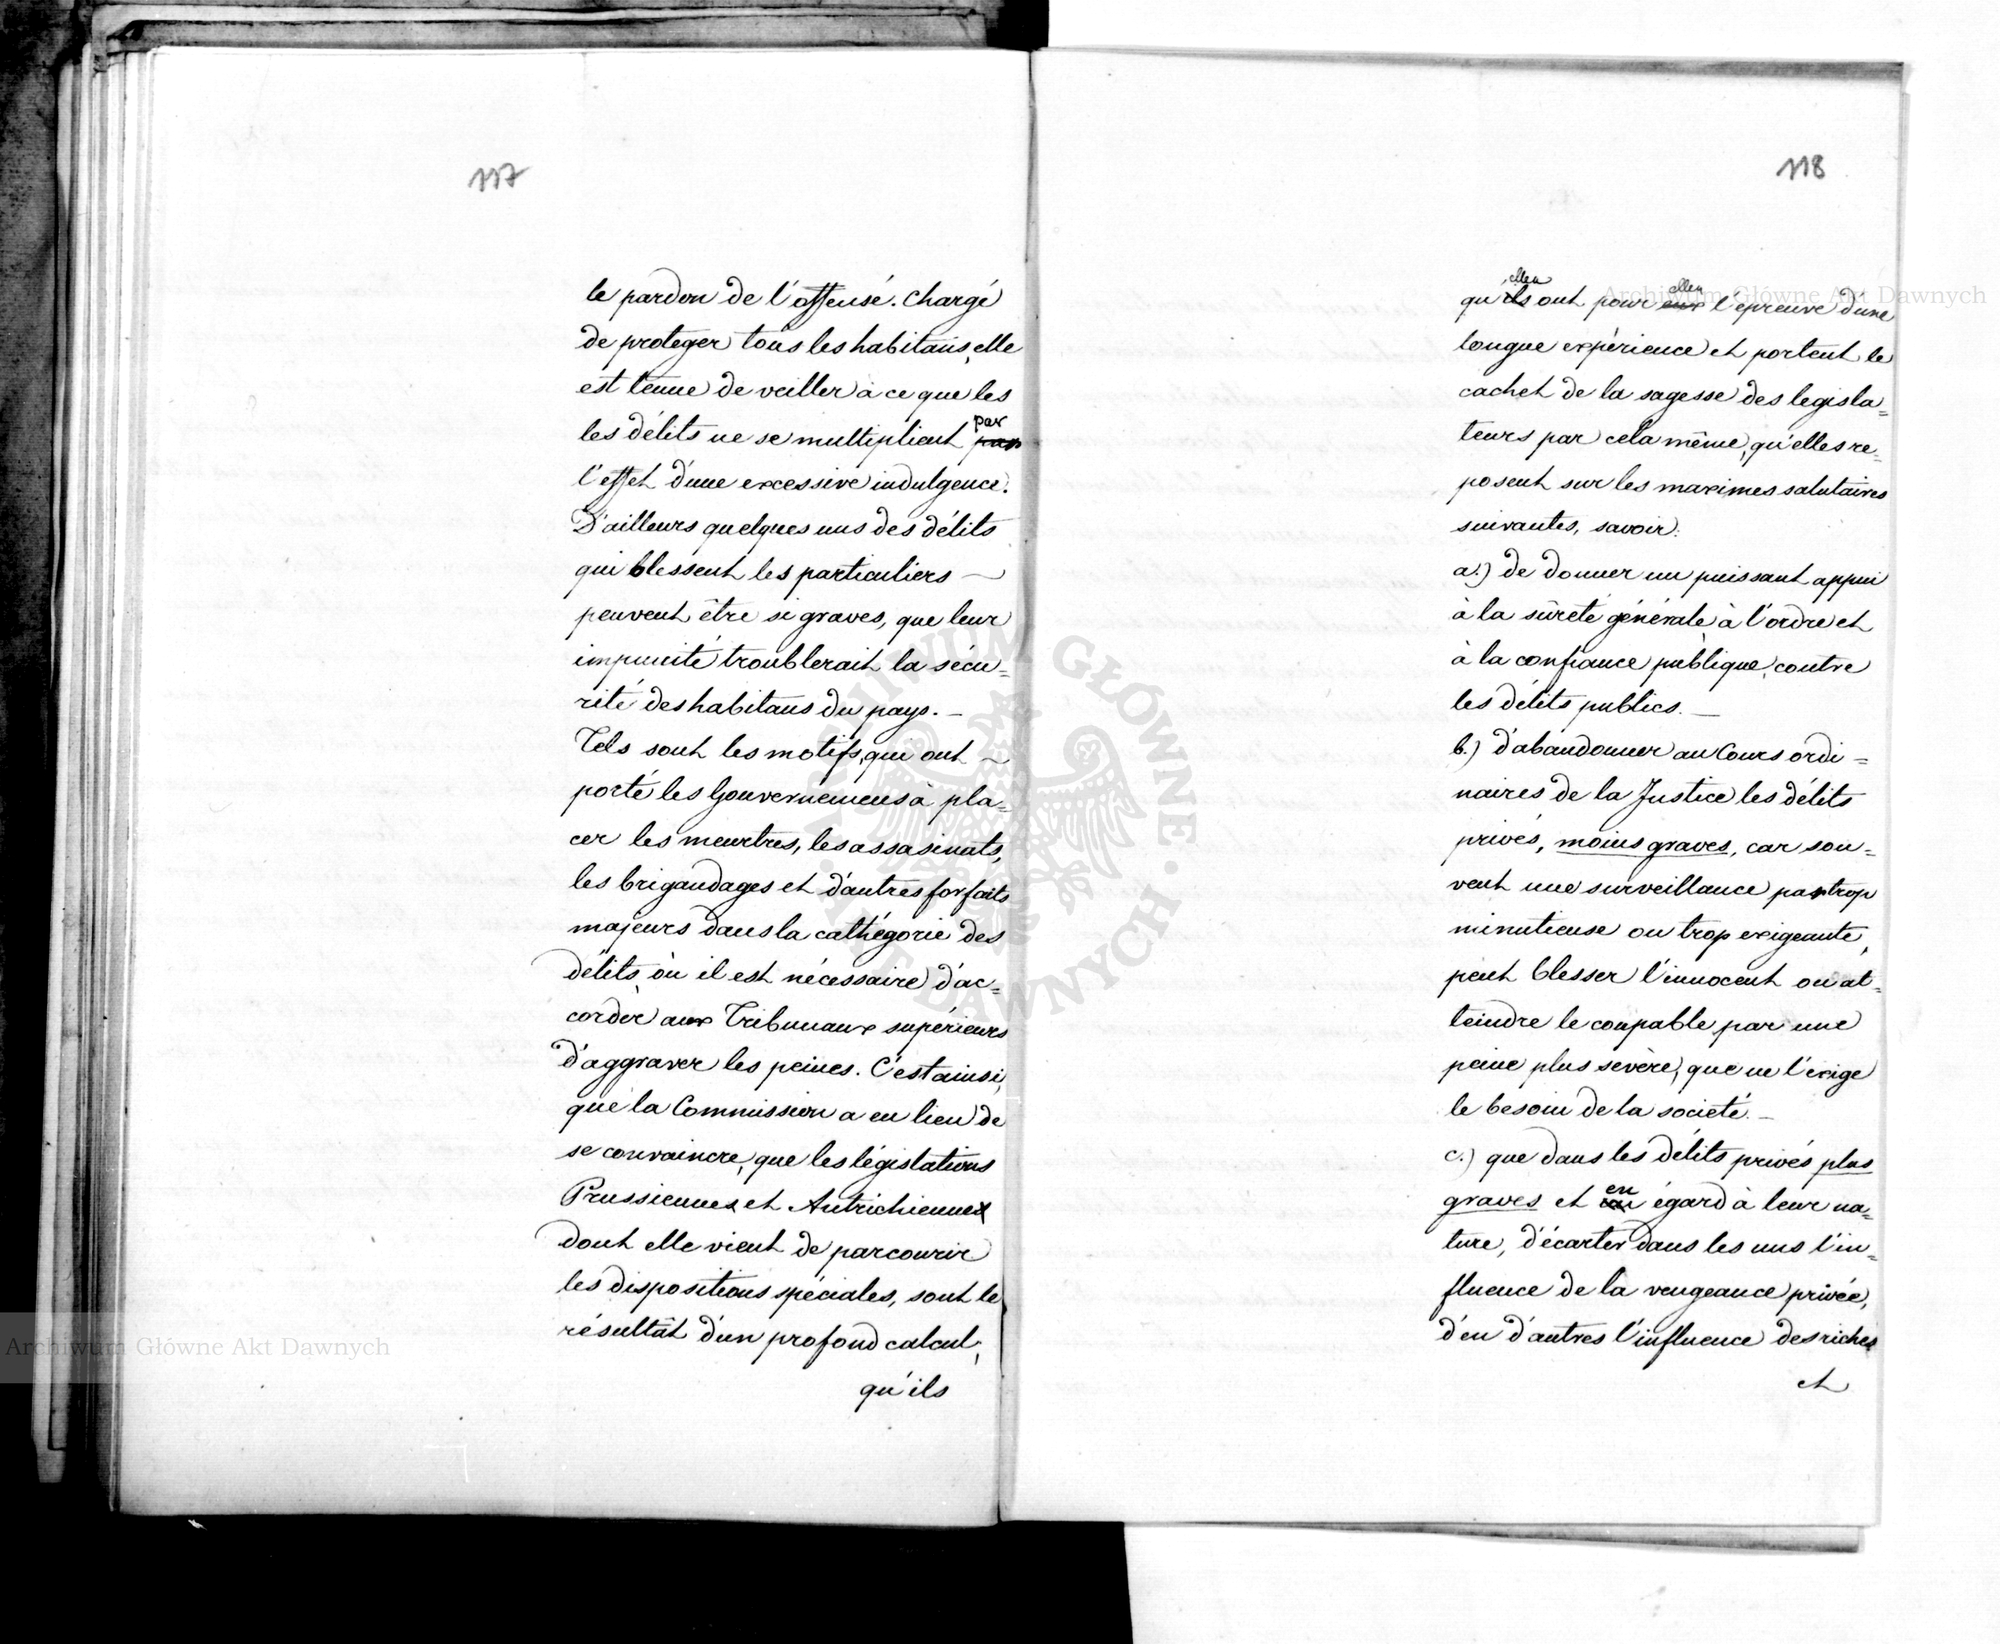 117
le pardon de l'offensé. Chargé
de proteger tous les habitans, elle
est tenue de veiller à ce que les
les délits ne se multiplient par
l'effet d'une excessive indulgence.
D'ailleurs quelques uns des délits
qui blessent les particuliers —
peuvent être si graves, que leur
impunité troublerait la sécu=
rité des habitans du pays. —
Tels sont les motifs, qui ont —
porté les Gouvernemens à pla=
cer les meurtres, les assasinats,
les brigandages et d'autres forfaits
majeurs dans la cathégorie des
délits, où il est nécessaire d'ac=
corder aux Tribunaux supérieurs
d'aggraver les peines. C'est ainsi,
que la Commission a eu lieu de
se convaincre, que les législations
Prussiennes et Autrichiennes
dont elle vient de parcourir
les dispositions spéciales, sont le
résultat d'un profond calcul,
qu'ils
118
qu'elles ont pour elles l'epreuve d'une
longue expérience et portent le
cachet de la sagesse des legisla=
teurs par cela même, qu'elles re=
posent sur les maximes salutaires
suivantes, savoir:
a.) de donner un puissant appui
à la sûreté générale à l'ordre et
à la confiance publique, contre
les délits publics. —
b.) d'abandonner au Cours ordi=
naires de la Justice les délits
privés, moins graves, car sou=
vent une surveillance par trop
minutieuse ou trop exigeante,
peut blesser l'innocent ou at=
teindre le coupable par une
peine plus sevère, que ne l'exige
le besoin de la societé. —
c.) que dans les délits privés plus
graves et en égard à leur na=
ture, d'écarter dans les uns l'in=
fluence de la vengeance privée,
d'en d'autres l'influence des riches
et
Archiwum Główne Akt Dawnych
Archiwum Główne Akt Dawnych
ARCHIWUM GŁÓWNE AKT DAWNYCH